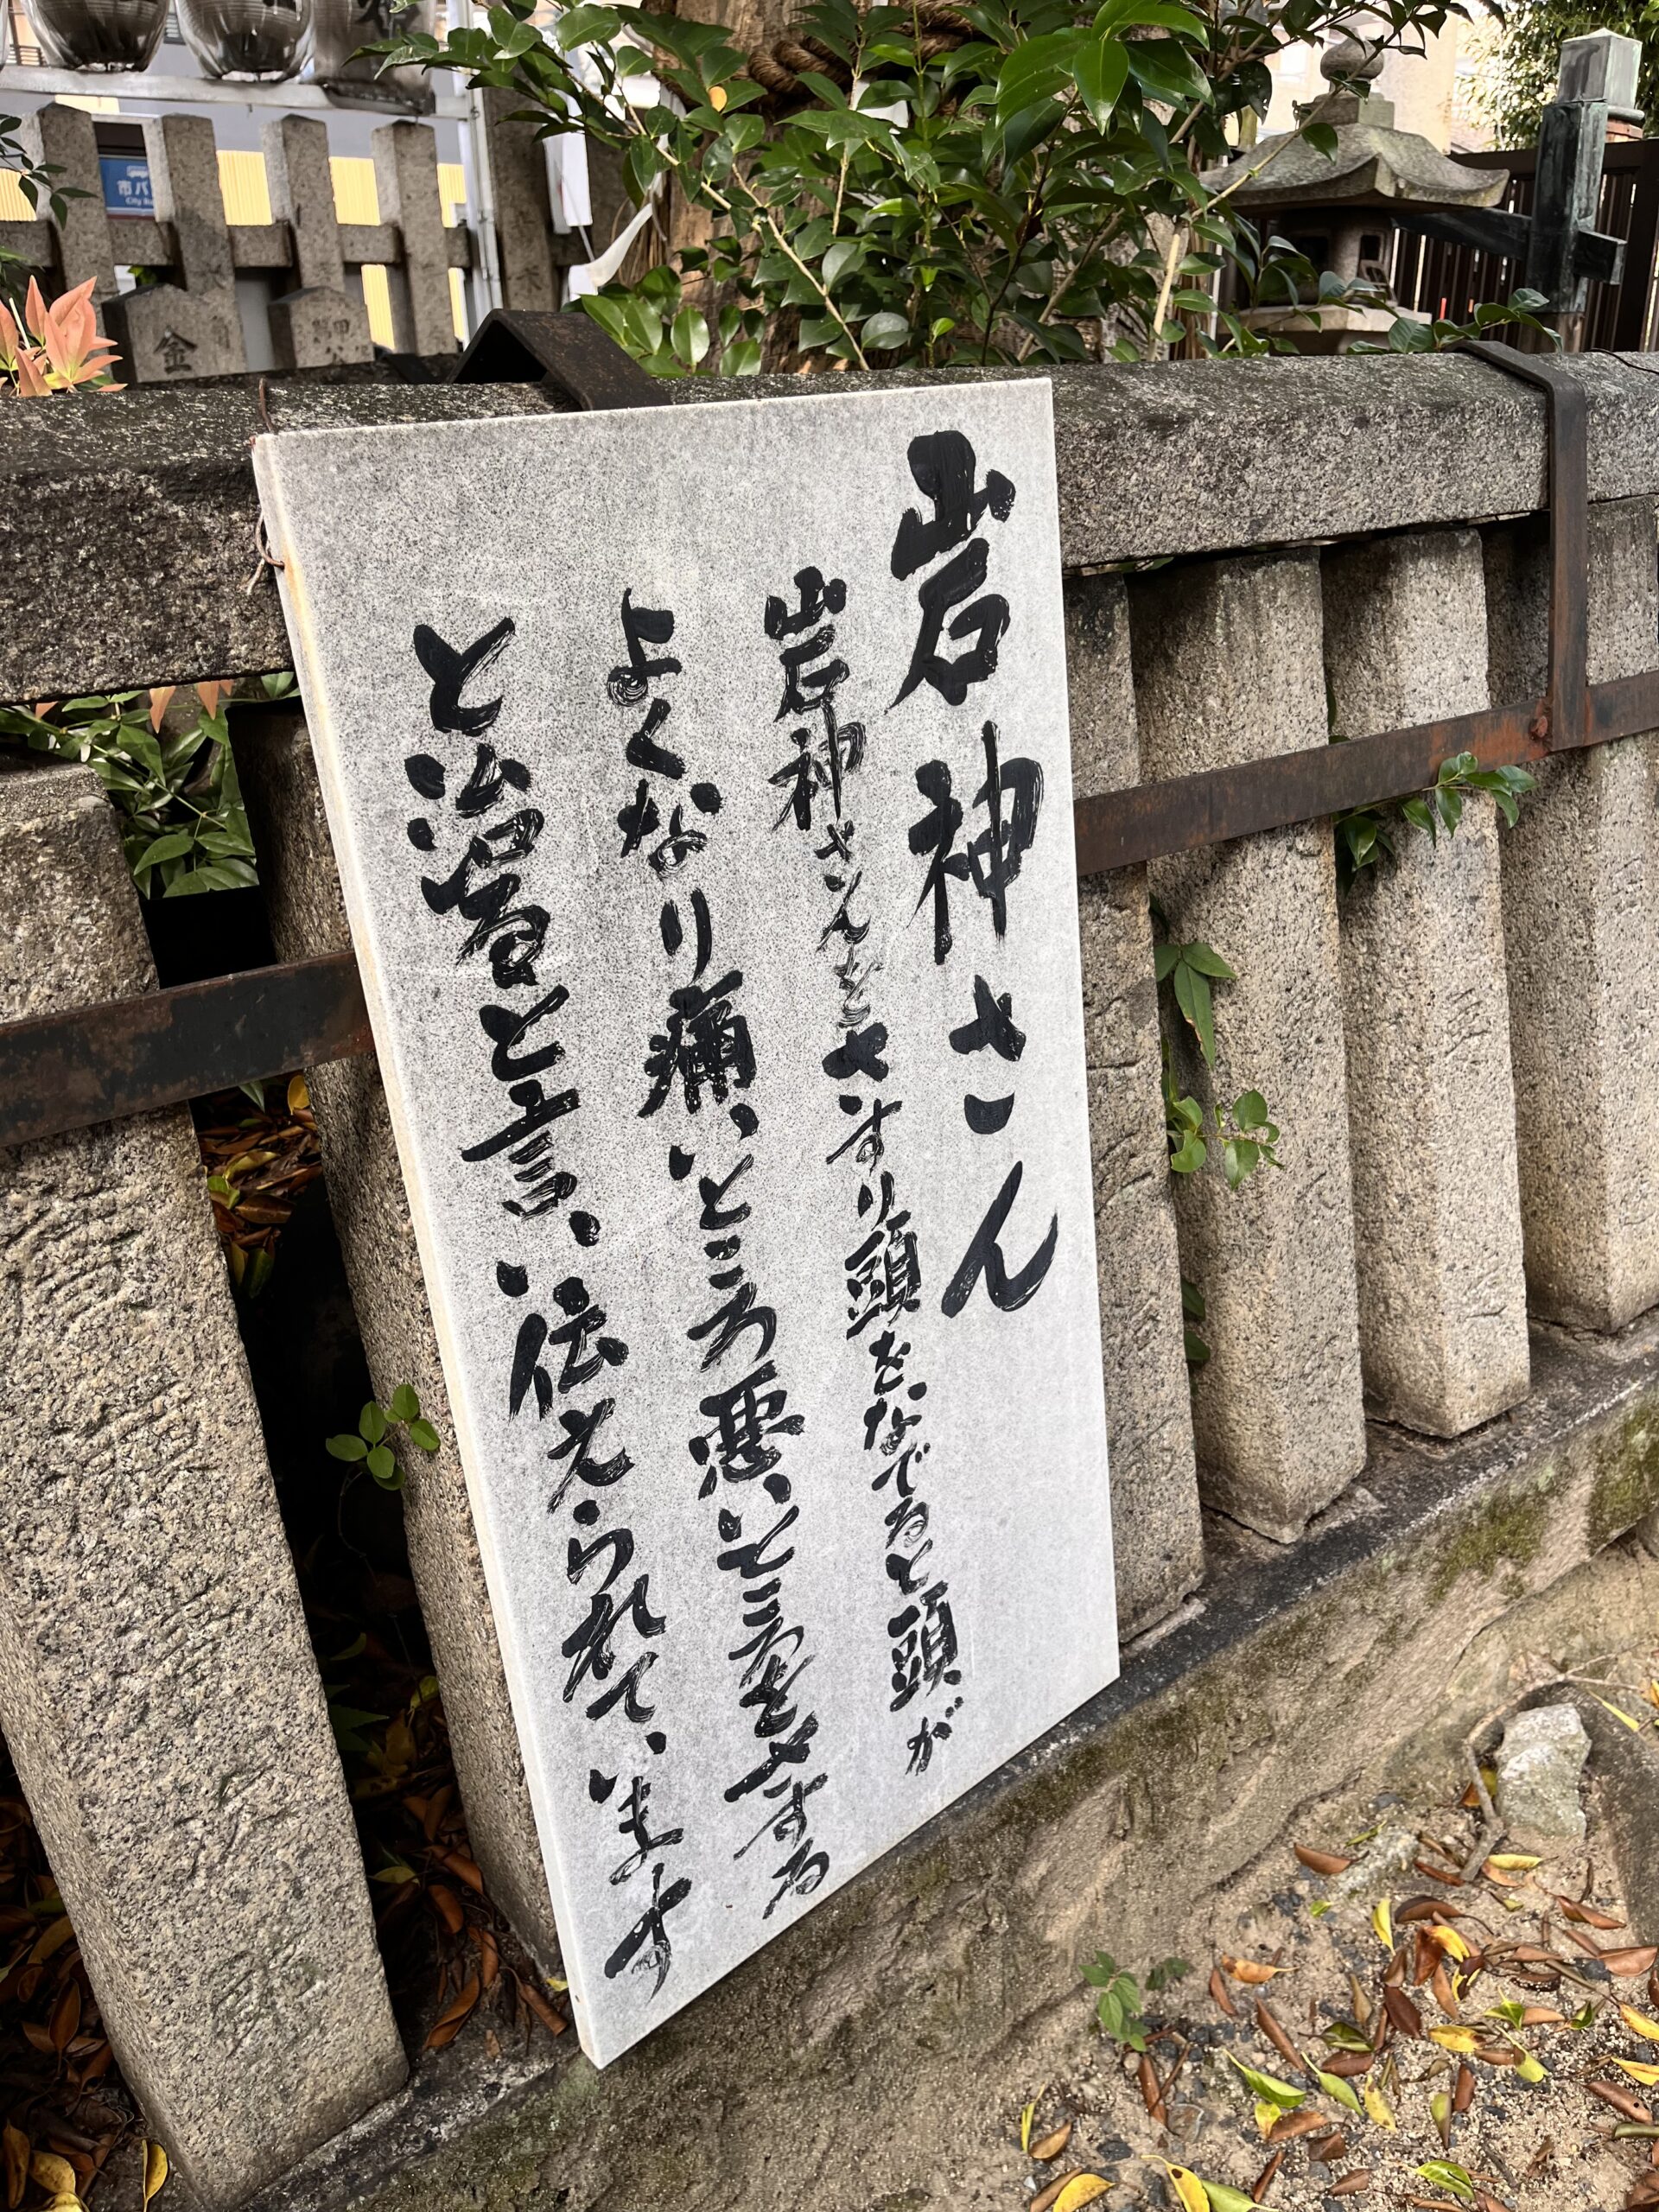 岩神さん
岩神さんをさすり頭をなでると頭が
よくなり痛いところ悪いところをさする
と治ると言い伝えられています
市バ
City Bu
金